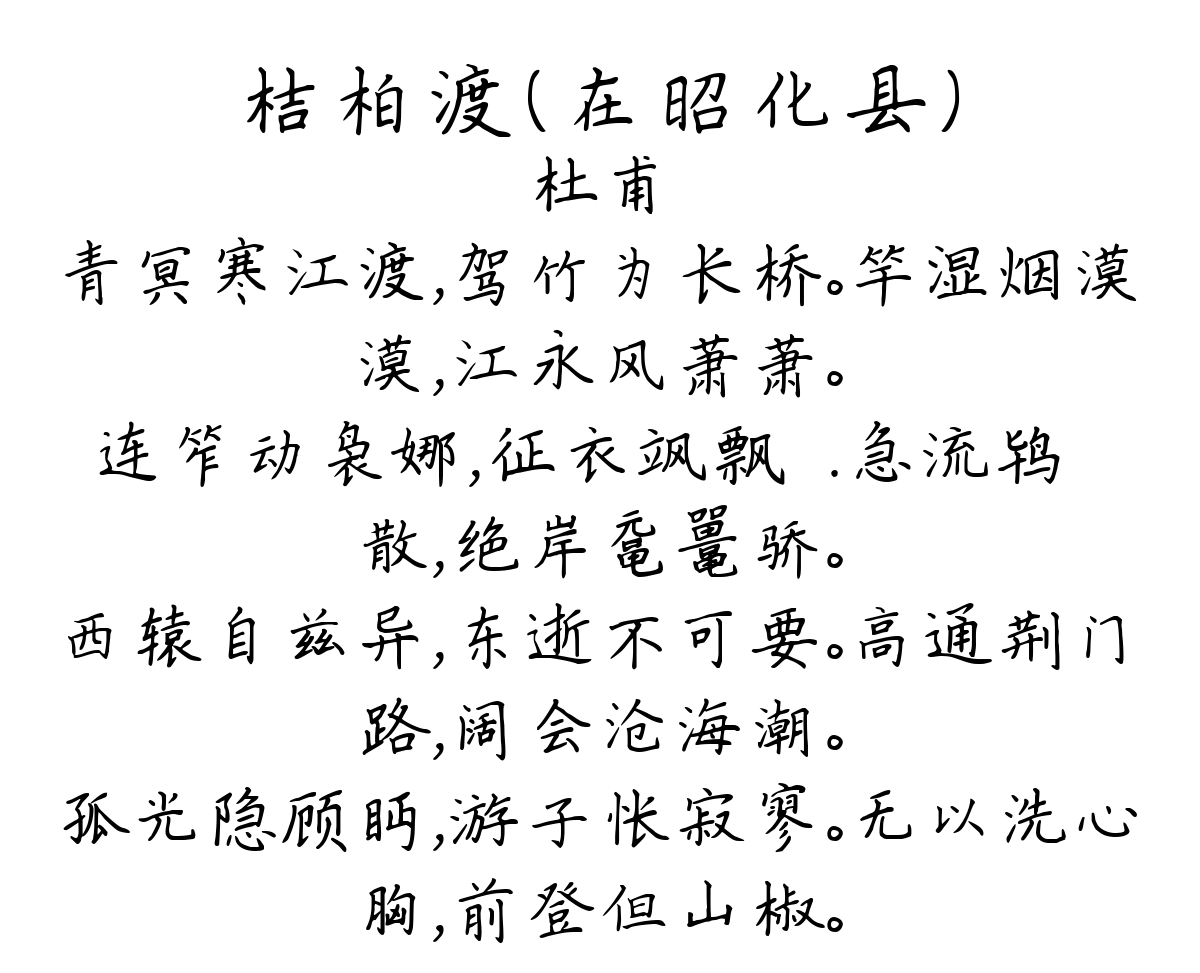 桔柏渡(在昭化县)
杜甫
青冥寒江渡,驾竹为长桥。竿湿烟漠
漠,江永风萧萧。
连笮动袅娜,征衣飒飘 .急流鸨
散,绝岸鼋鼍骄。
西辕自兹异,东逝不可要。高通荆门
路,阔会沧海潮。
孤光隐顾眄,游子怅寂寥。无以洗心
胸,前登但山椒。